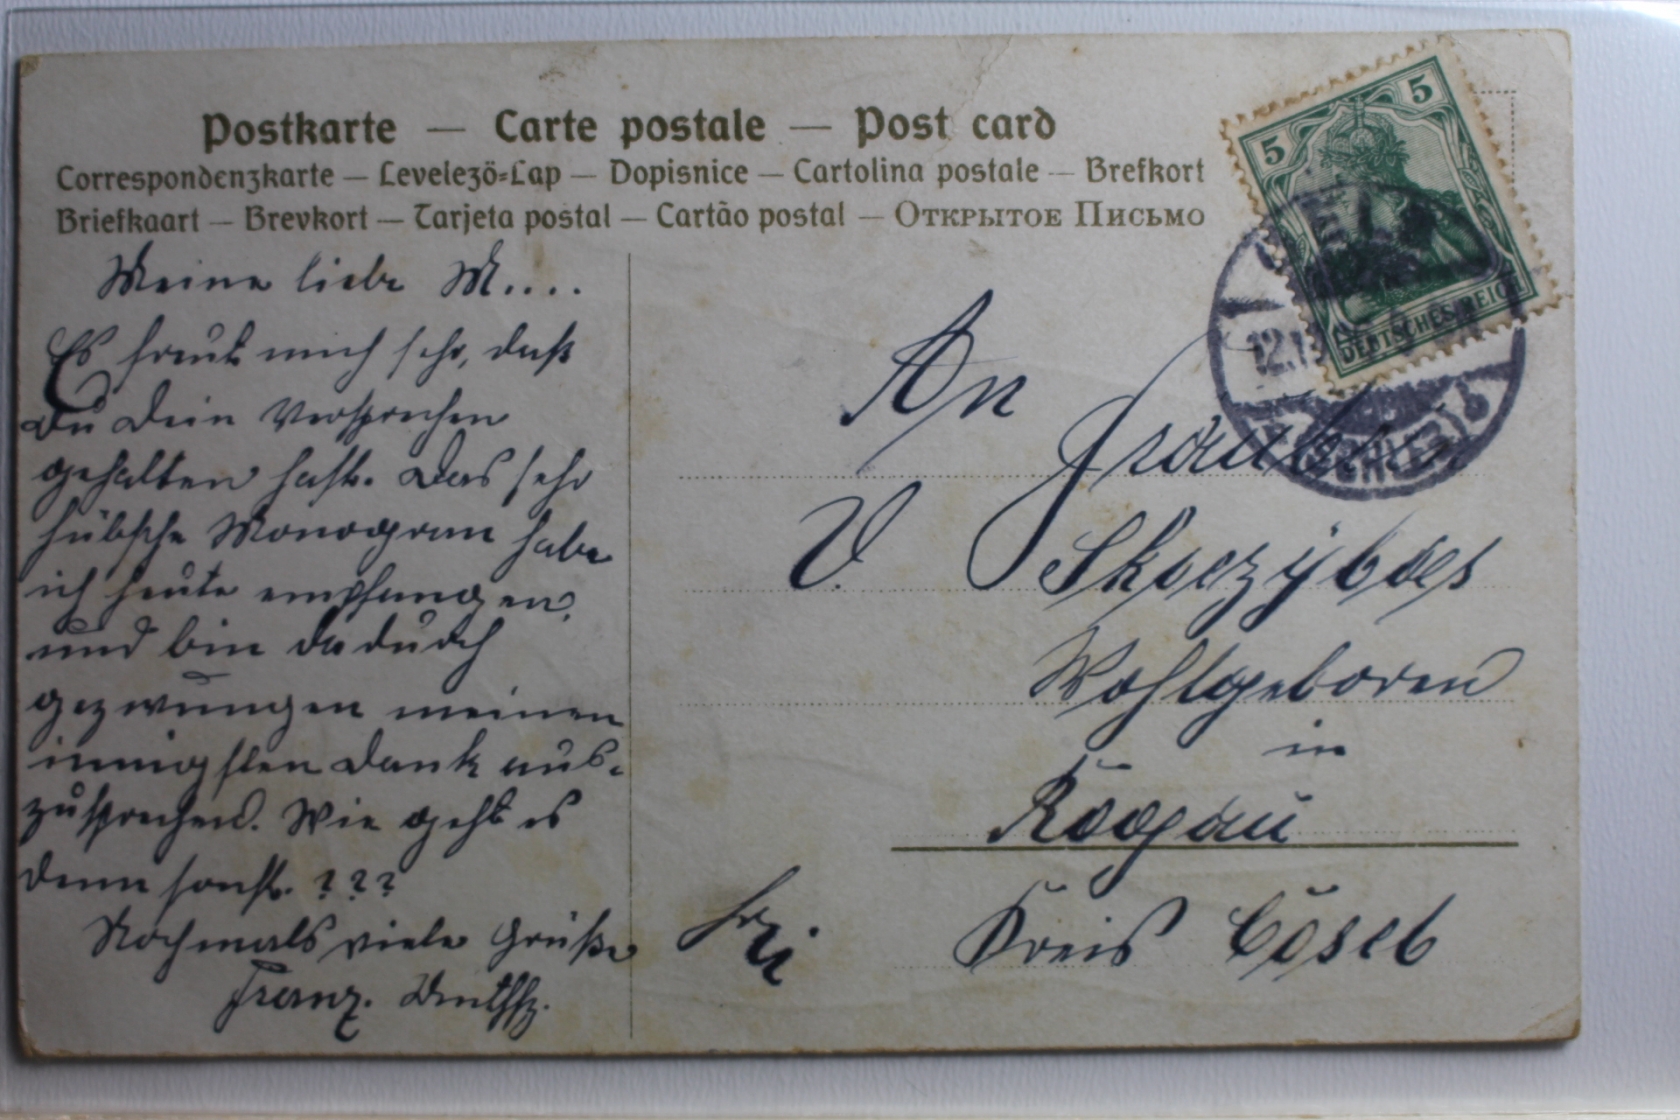 Postkarte — Carte postale — Post card
Correspondenzkarte — Levelező-Lap — Dopisnice — Cartolina postale — Brefkort
Briefkaart — Brevkort — Tarjeta postal — Cartão postal — Открытое Письмо
Meine liebe M....
Es freut mich sehr, daß
Du Dein Versprechen
gehalten hast. Das sehr
hübsche Monogram habe
ich heute empfangen,
und bin dadurch
gezwungen meinen
innigsten Dank aus-
zusprechen. Wie geht es
denn sonst. ???
Nochmals viele Grüße
Franz.
5 5
DEUTSCHES REICH
12.
An
Fräulein
V.
Wohlgeboren
in
Roogau
Kreis Cosel